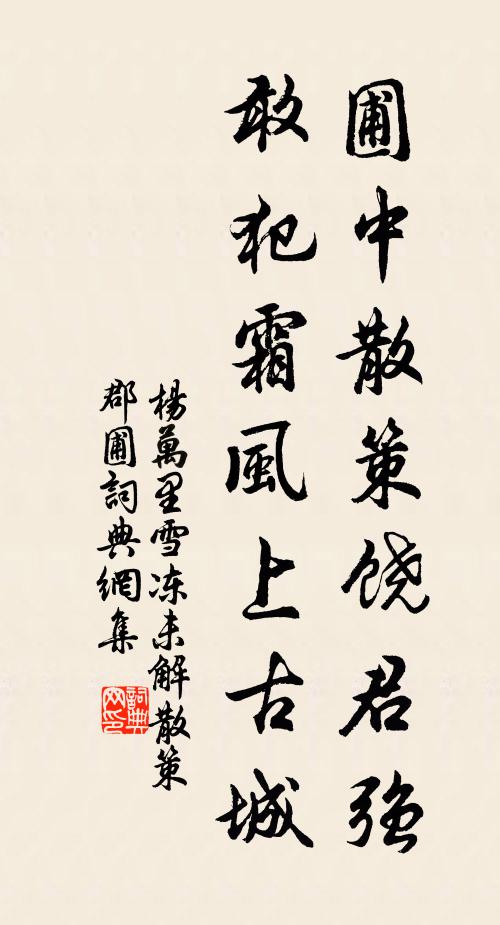 圃中散策饶君強
敢犯霜風上古城
楊萬里雪冻未解散策
郡圃詞典網集
詞典
网印